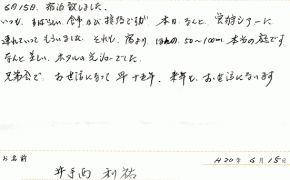 6月15日、宿泊致しました。
いつも、すばらしい食事及び接待ですが 本日、なんと、蛍狩りツアーに
連れていって もらいました。それも、宿より、ほんの50〜100m 本当の庭です
なんと美しい、ホタルの光游でした。
兄弟会で、お世話になって 早十五年、来年も、お世話になります
お名前
H20年 6月15日
井手西 利祐